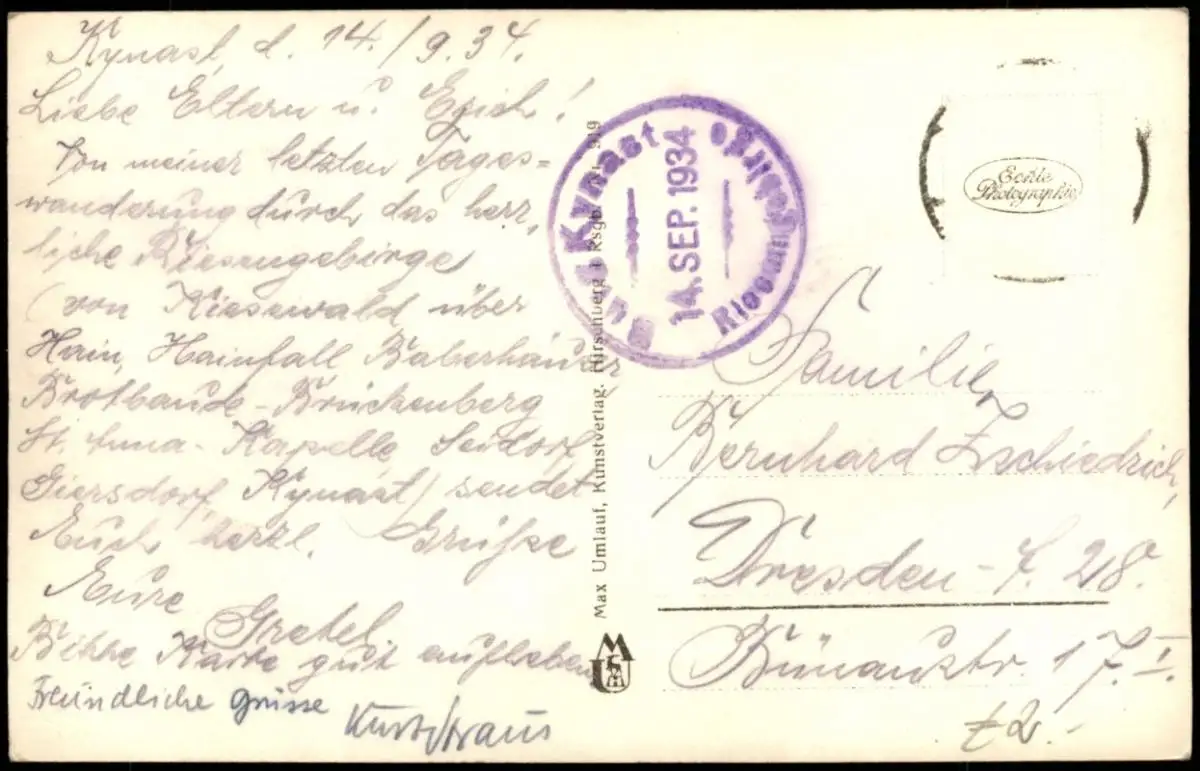 Kynast, d. 14./9.34.
Liebe Eltern u. Erich!
Von meiner letzten Tages=
wanderung durch das herr,
liche Riesengebirge
(von Kiesewald über
Hain, Hainfall Baberhäuser
Brotbaude - Brückenberg
St. Anna - Kapelle, Seidorf,
Giersdorf, Kynast) sendet
Euch herzl. Grüße
Eure
Gretel.
Bitte Karte gut aufheben
Freundliche Grüsse
Kurt Straus
Max Umlauf, Kunstverlag, Hirschberg i. Rsgb.
MU
Burg Kynast
14. SEP. 1934
Riesengebirge
Echte
Photographie
Familie
Bernhard Zschiedrich,
Dresden - A. 28.
Bünaustr. 17. I.